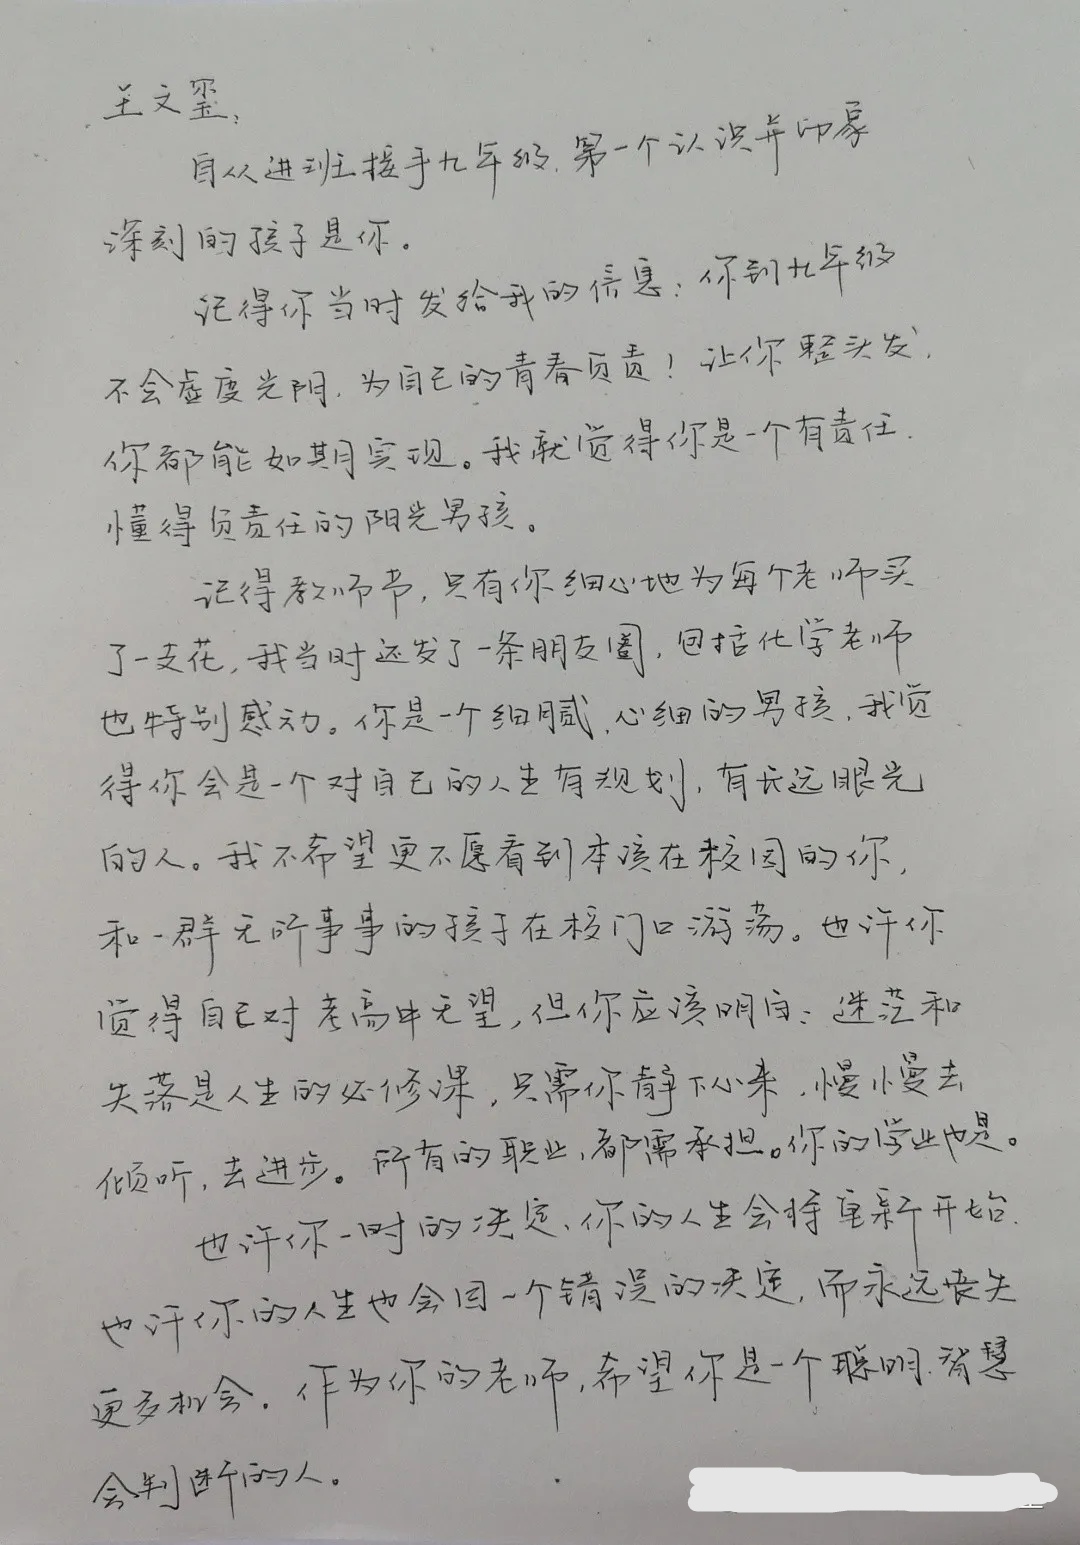 王文玺:
自从进班接手九年级,第一个认识并印象
深刻的孩子是你。
记得你当时发给我的信息:你到九年级
不会虚度光阴,为自己的青春负责!让你整头发,
你都能如期实现。我就觉得你是一个有责任,
懂得负责任的阳光男孩。
记得教师节,只有你细心地为每个老师买
了一支花,我当时还发了一条朋友圈,包括化学老师
也特别感动。你是一个细腻,心细的男孩,我觉
得你会是一个对自己的人生有规划,有长远眼光
的人。我不希望更不愿看到本该在校园的你,
和一群无所事事的孩子在校门口游荡。也许你
觉得自己对考高中无望,但你应该明白:迷茫和
失落是人生的必修课,只需你静下心来,慢慢去
倾听,去进步。所有的职业,都需承担。你的学业也是。
也许你一时的决定,你的人生会将重新开始.
也许你的人生也会因一个错误的决定,而永远丧失
更多机会。作为你的老师,希望你是一个聪明.智慧
会判断的人。